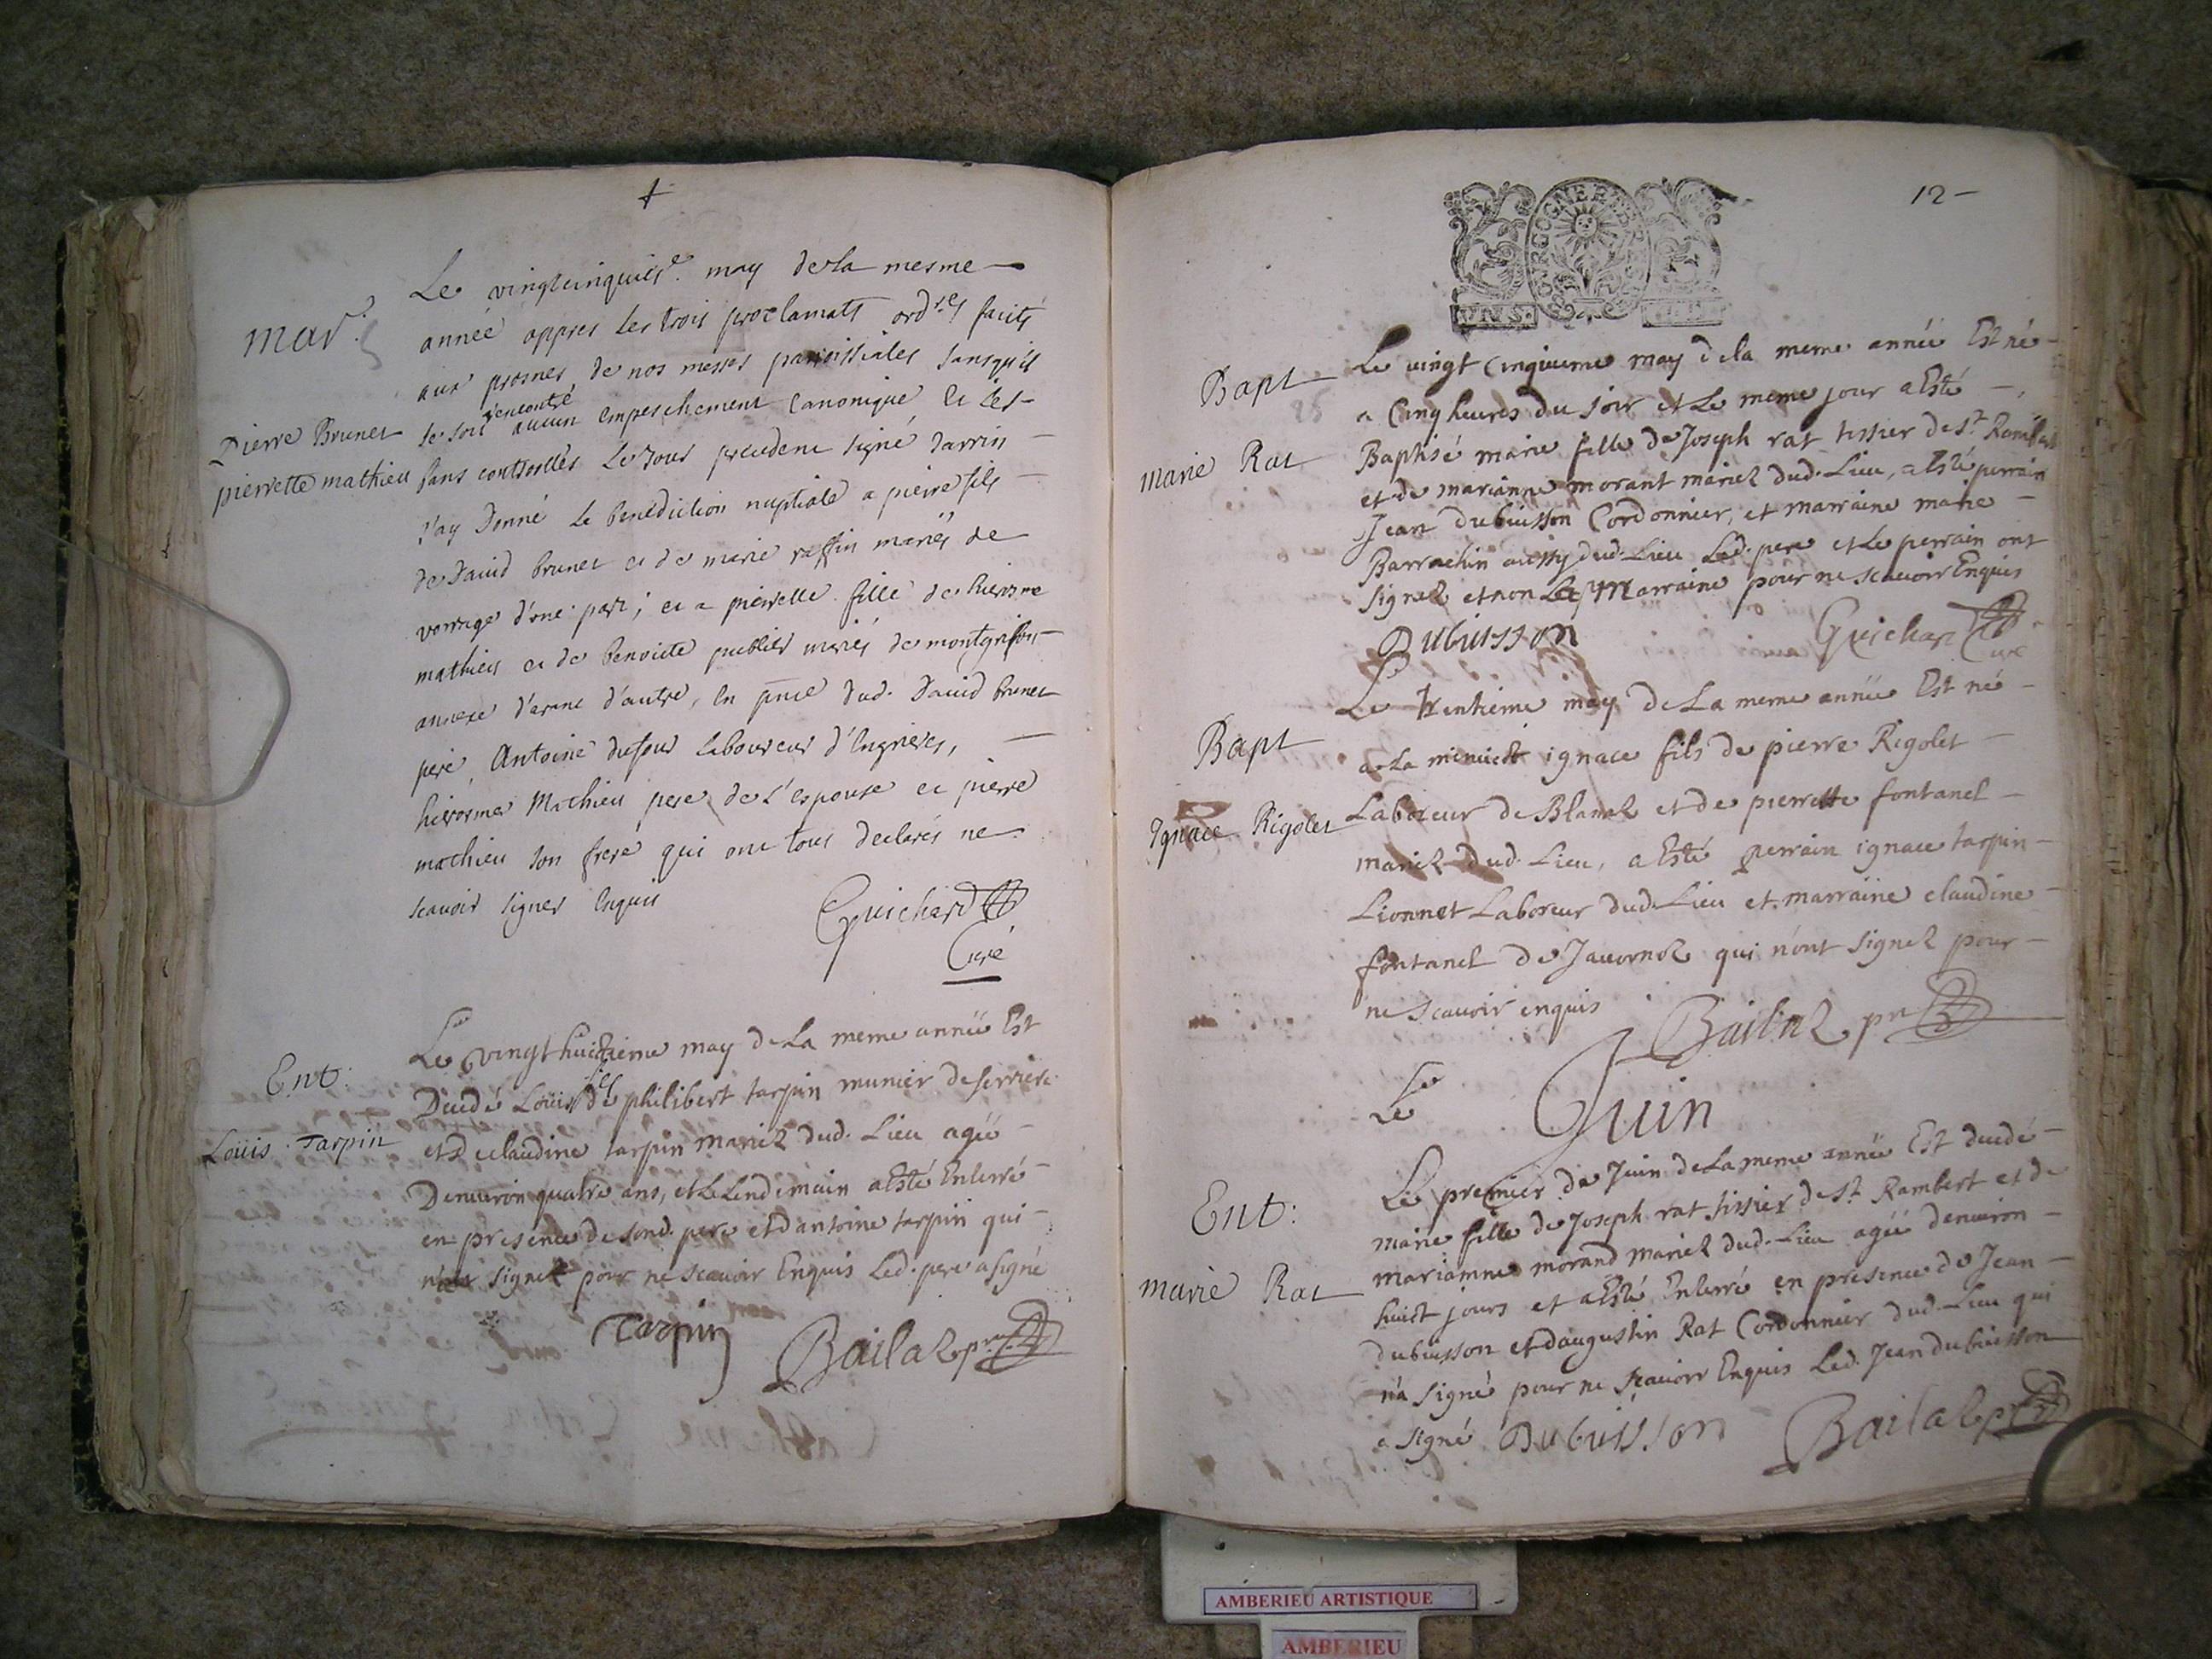 Le vingtcinquies.e may de la mesme
mar.
année appres les trois proclamats ord.res faits
aux prosnes de nos messes paroissiales sans qu'il
rencontré
Pierre Brunet
se soit aucun empeschement canonique et les
pierrette mathieu
sans controllés le jour precedent signé Jarrin
j'ay donné la benediction nuptiale a pierre fils
de david brunet et de marie raffin mariés de
vorrage d'une part; et a pierrette fille de hierosme
mathieu et de benoitte mariés de montgriffon
annexe d'arane d'autre, en pnce dud. david brunet
pere, Antoine dufour laboureur d'Ingrieres,
hierosme Mathieu pere de l'espouse et pierre
mathieu son frere qui ont tous declarés ne
scavoir signer enquis
Guichard
Curé
Ent:
Le vingt huictieme may de la meme année Est
fils
decedé Loüis de philibert tarpin munier de serriere
Loüis Tarpin
et de claudine tarpin mariez dud. Lieu agé
denuiron quatre ans, et le lendemain a Esté Enterré
en presence de sond. pere et dantoine tarpin qui
n'a signé pour ne scauoir Enquis Led. pere a signé
Tarpin
Bailaz ptre
12
BOURGOGNE
Bapt
Le vingt Cinquieme may de la meme année Est né
a Cinq heures du soir et Le meme jour a Esté
Marie Rat
Baptisé marie fille de Joseph rat tissier de St. Rambert
et de marianne morant mariez dud. Lieu, a Esté perrain
Jean dubuisson Cordonnier, et marraine marie
Barrachin aussy dud. Lieu Led. pere et Le perrain ont
signez et non La Marraine pour ne scauoir Enquis
Dubuisson
Guichard Curé
Bapt
Le trentieme may de La meme année Est né
a La minuict ignace fils de pierre Rigolet
Ignace Rigolet
Laboreur de Blanaz et de pierrette fontanel
mariez dud. Lieu, a Esté perrain ignace tarpin
Lionnet Laboreur dud. Lieu et marraine claudine
fontanel de Jauornoz qui n'ont signez pour
ne scauoir enquis
Bailaz ptre
Le
Juin
Ent:
Le premier de Juin de La meme année Est decedé
marie fille de Joseph rat tissier de St. Rambert et de
marianne morand mariez dud. Lieu agée denuiron
Marie Rat
huict jours et a Esté Enterré en presence de Jean
dubuisson et daugustin Rat Cordonnier dud. Lieu qui
n'a signé pour ne scauoir Enquis Led. Jean dubuisson
a signé Dubuisson
Bailaz ptre
AMBERIEU ARTISTIQUE
AMBERIEU